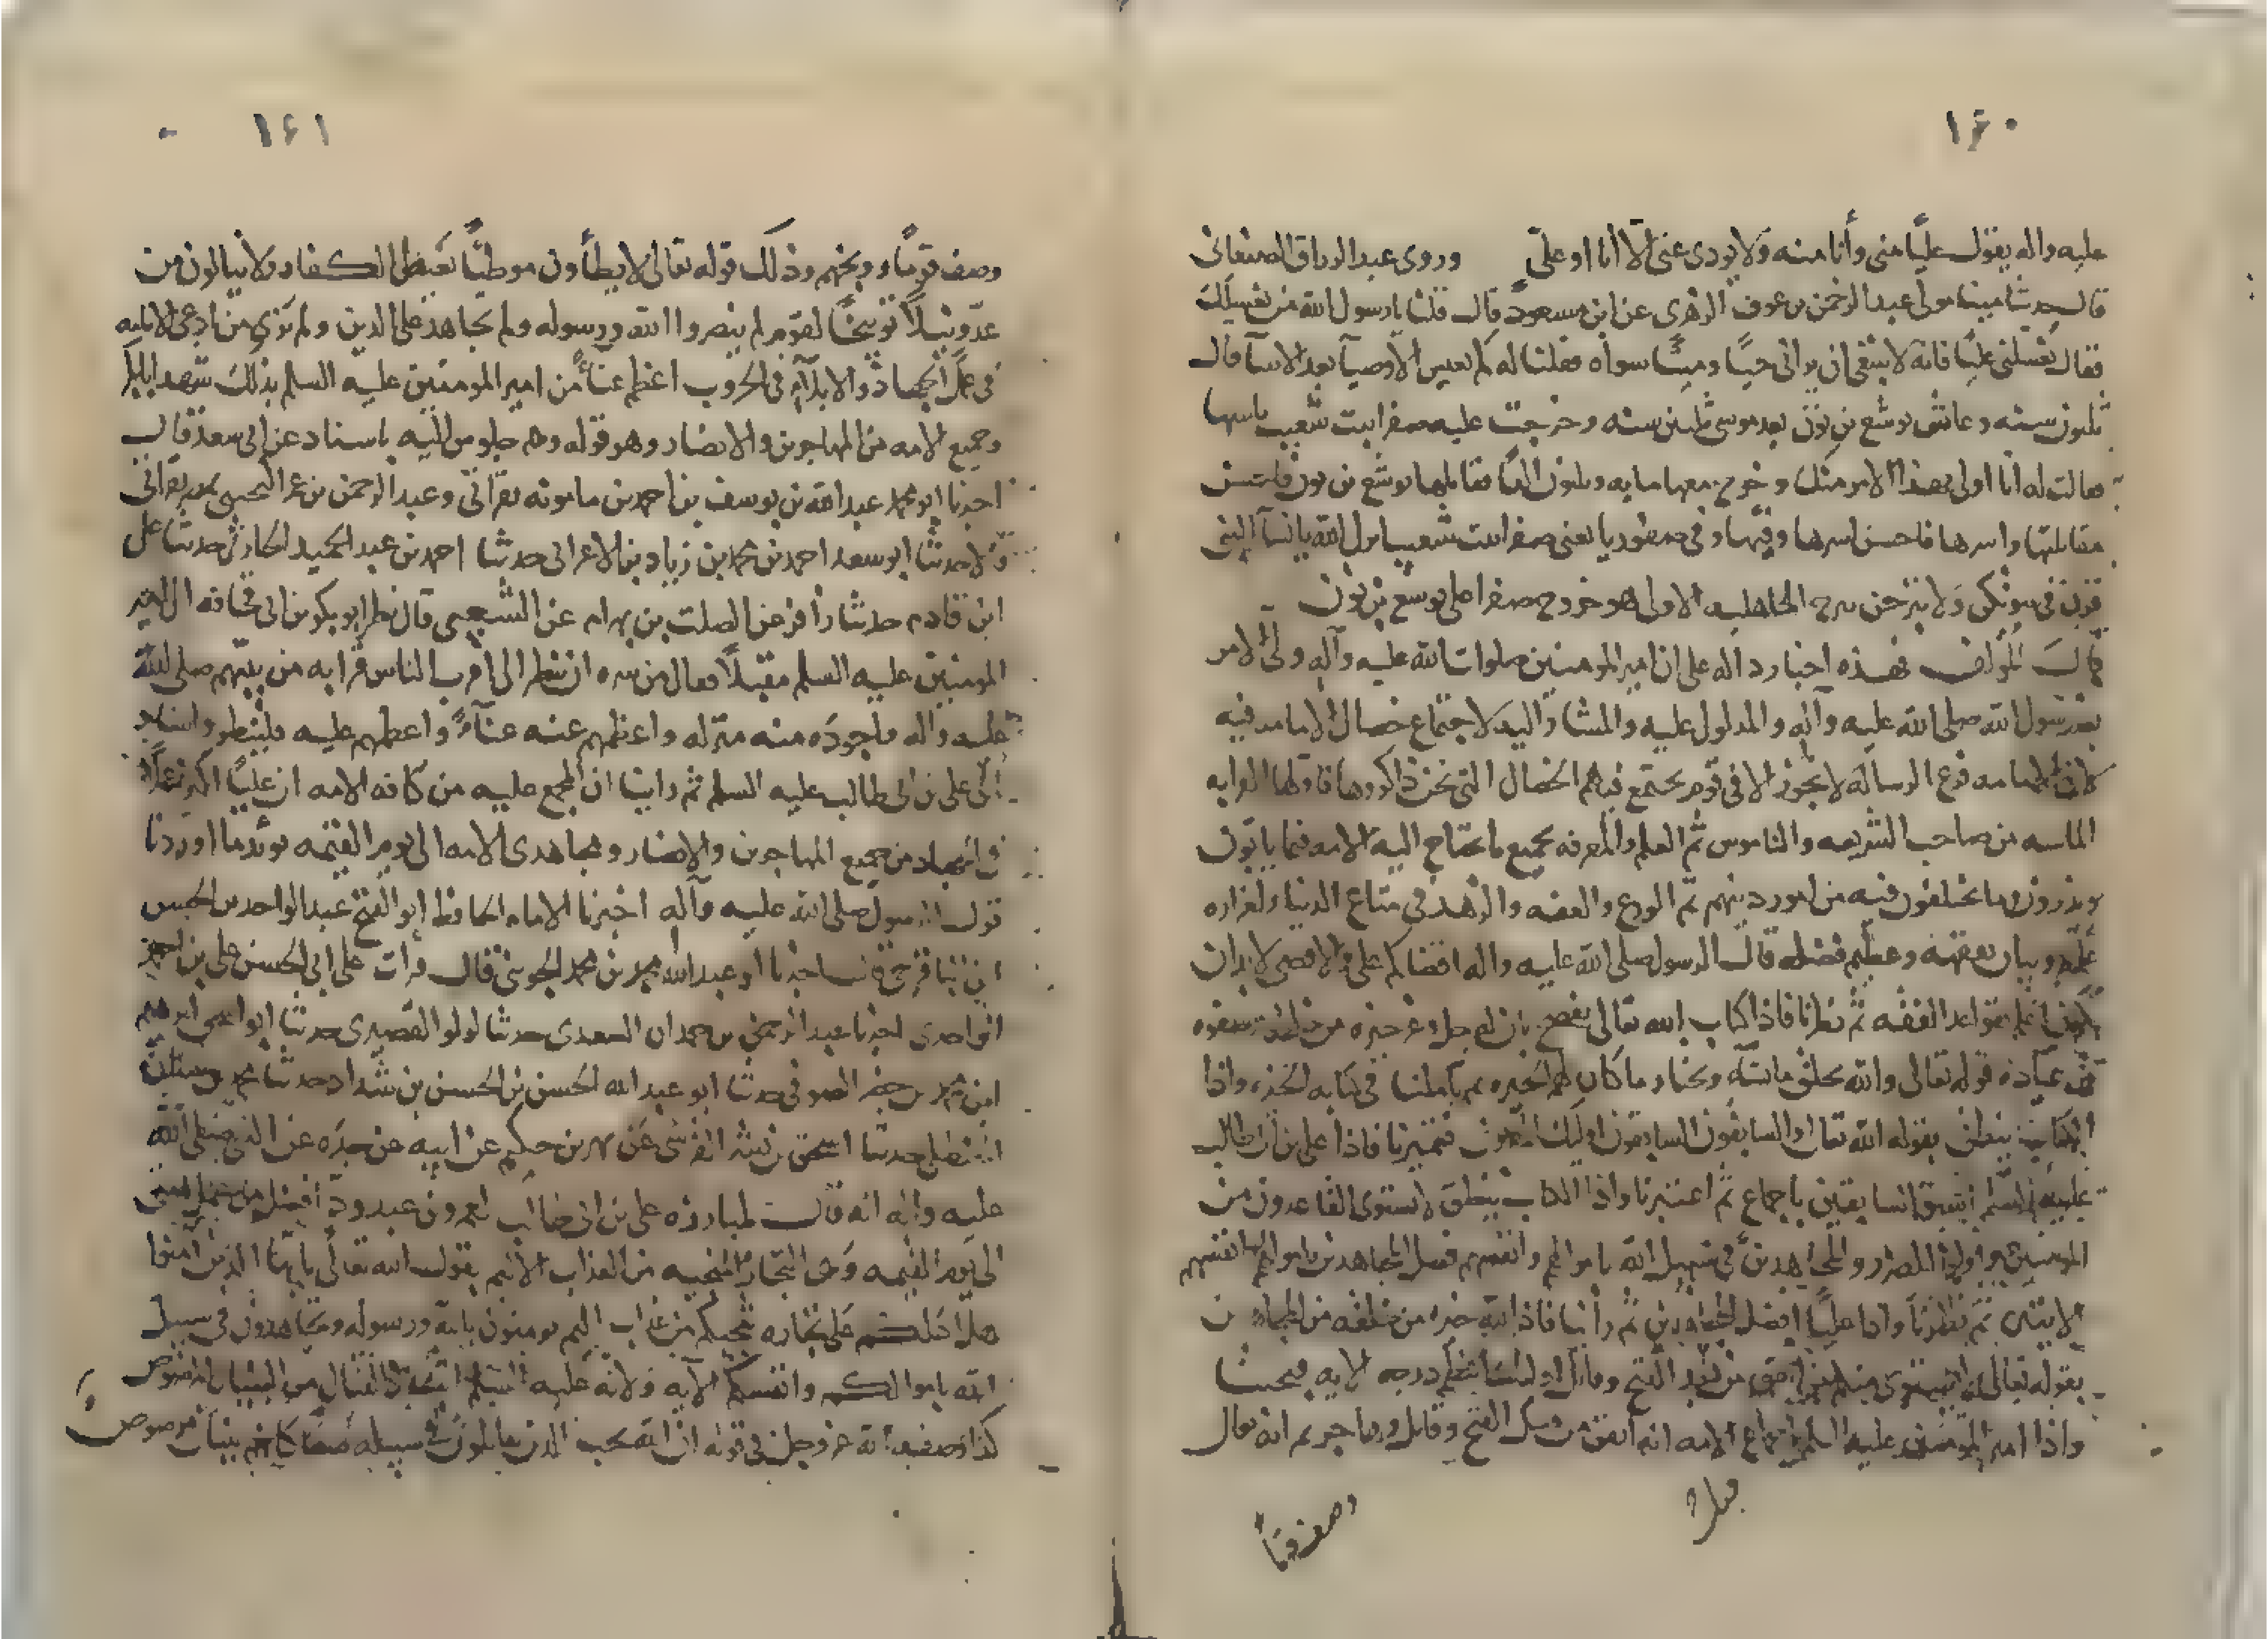 ١٦٠
عليه واله يقول عليًّا منى وأنا منه ولا يودى عنى الّا أنا او علىّ وروى عبد الرزاق الصنعانى
قال حدثنا مينا مولى عبد الرحمن بن عوف الزهرى عن ابن مسعود قال قلت يا رسول الله من يغسلك
فقال يغسلنى عليًّا فانه لا ينبغى ان يرانى حيًّا وميتًا سواه فقلنا له كم يعيش الاوصيآ بعد الانبيآ قال
ثلثون سنه وعاش يوشع بن نون بعد موسى ثلثين سنه وخرجت عليه صفرا بنت شعيب
فقالت له انا اولى بهذا الامر منك وخرج معها مايه وثلثون الفًا فقاتلها يوشع بن نون
مقاتليها واسرها فاحسن اسرها وفيها وفى يعنى صفرا بنت شعيب انزل الله يا نسآ النبى
قرن فى بيوتكن ولا تبرجن تبرج الجاهليه الاولى هو خروج صفرا على يوشع بن نون
قال المولف فهذه اخبار داله على ان امير المومنين صلوات الله عليه وآله ولى الامر
بعد رسول الله صلى الله عليه وآله والمدلول عليه والمشار اليه لاجتماع خصال الامامه فيه
لان الامامه فرع الرساله لا تجوز الا فى قوم تجتمع فيهم الخصال التى نحن ذاكروها فاولها القرابه
الماسه من صاحب الشريعه والناموس ثم العلم والمعرفه بجميع ما تحتاج اليه الامه فيما ياتون
ويذرون وما يختلفون فيه من امور دينهم ثم الورع والعفه والزهد فى متاع الدنيا ولغزاره
علمه وبيان تفقهه وعظيم فضله قال الرسول صلى الله عليه واله اقضاكم على والاقضى لا بد ان
يكون اعلم بقواعد الفقه ثم نظرنا فاذا كتاب الله تعالى يفصح بان لله جل وعز خيره من خلقه
من عباده قوله تعالى والله يخلق ما يشآء ويختار ما كان لهم الخيره ثم تاملنا فى كتابه الخيره واذا
الكتاب ينطق بقوله الله تعالى والسابقون السابقون اوليك المقربون فميزنا فاذا على بن ابى طالب
عليه السلم اسبق السابقين باجماع ثم اعتبرنا واذا الكتاب ينطق لا يستوى القاعدون من
المومنين غير اولى الضرر والمجاهدين فى سبيل الله باموالهم وانفسهم فضل المجاهدين باموالهم وانفسهم
الايتين ثم نظرنا واذا عليًّا افضل المجاهدين ثم رأينا فاذا لله خيره من خلقه من المجاهدين
بقوله تعالى لا يستوى منكم من انفق من قبل الفتح وقاتل اوليك اعظم درجه الايه فبحثنا
واذا امير المومنين عليه السلم باجماع الامه انه انفق من قبل الفتح وقاتل وهاجر ثم انه تعالى
وصف قومًا
١٦١
وصف قومًا ووبخهم وذلك قوله تعالى لا يطأون موطيًّا يغيظ الكفار ولا ينالون من
عدو نيلًا توبيخًا لقوم لم ينصروا الله ورسوله ولم يجاهد على الدين ولم نرى من ادعى الامامه
فى عمل الجهاد والابلآء فى الحروب اعظم عنآءً من امير المومنين عليه السلم بذلك شهد
وجميع الامه من المهاجرين والانصار وهو قوله باسناد عن ابى سعد قال
اخبرنا ابو محمد عبد الله بن يوسف بن احمد بن مامونه بقرآتى وعبد الرحمن بن عمر بقرآتى
قالا حدثنا ابو سعد احمد بن محمد بن زياد بن الاعرابى حدثنا احمد بن عبد الحميد الحارثى حدثنا على
ابن قادم حدثنا زافر عن الصلت بن بهرام عن الشعبى قال نظر ابو بكر بن ابى قحافه الى امير
المومنين عليه السلم مقبلًا فقال من سره ان ينظر الى اقرب الناس قرابه من نبيهم صلى الله
عليه واله واجوده منه منزله واعظمهم عنه عنآءً واعظمهم عليه فلينظر واشار
الى على بن ابى طالب عليه السلم ثم راينا ان المجمع عليه من كافه الامه ان عليًّا اكثر عملًا
فى الجهاد من جميع المهاجرين والانصار ومجاهدى الامه الى يوم القيمه يوئد ما اوردنا
قول الرسول صلى الله عليه وآله اخبرنا الامام الحافظ ابو الفتح عبد الواحد بن الحسن
اخبرنا ابو عبد الله محمد بن محمد الجوينى قال قرات على ابى الحسن على بن احمد
الواحدى اخبرنا عبد الرحمن بن حمدان السعدى حدثنا لولو القصيرى حدثنا ابو اسحق ابرهيم
ابن محمد بن جعفر الصوفى حدثنا ابو عبد الله الحسن بن الحسن بن شداد حدثنا محمد بن سنان
الحنظلى حدثنا اسحق بن بشر القرشى عن بهز بن حكيم عن ابيه عن جده عن النبى صلى الله
عليه واله انه قال لمبارزه على بن ابى طالب لعمرو بن عبد ود افضل من عمل امتى
الى يوم القيمه وهى التجاره المنجيه من العذاب الاليم بقول الله تعالى يا ايها الذين آمنوا
هل ادلكم على تجاره تنجيكم من عذاب اليم تومنون بالله ورسوله وتجاهدون فى سبيل
الله باموالكم وانفسكم الايه ولانه عليه السلم اثبت فى القتال من البنيان المرصوص
كذا وصفه الله عز وجل فى قوله ان الله يحب الذين يقاتلون فى سبيله صفًّا كانهم بنيان مرصوص